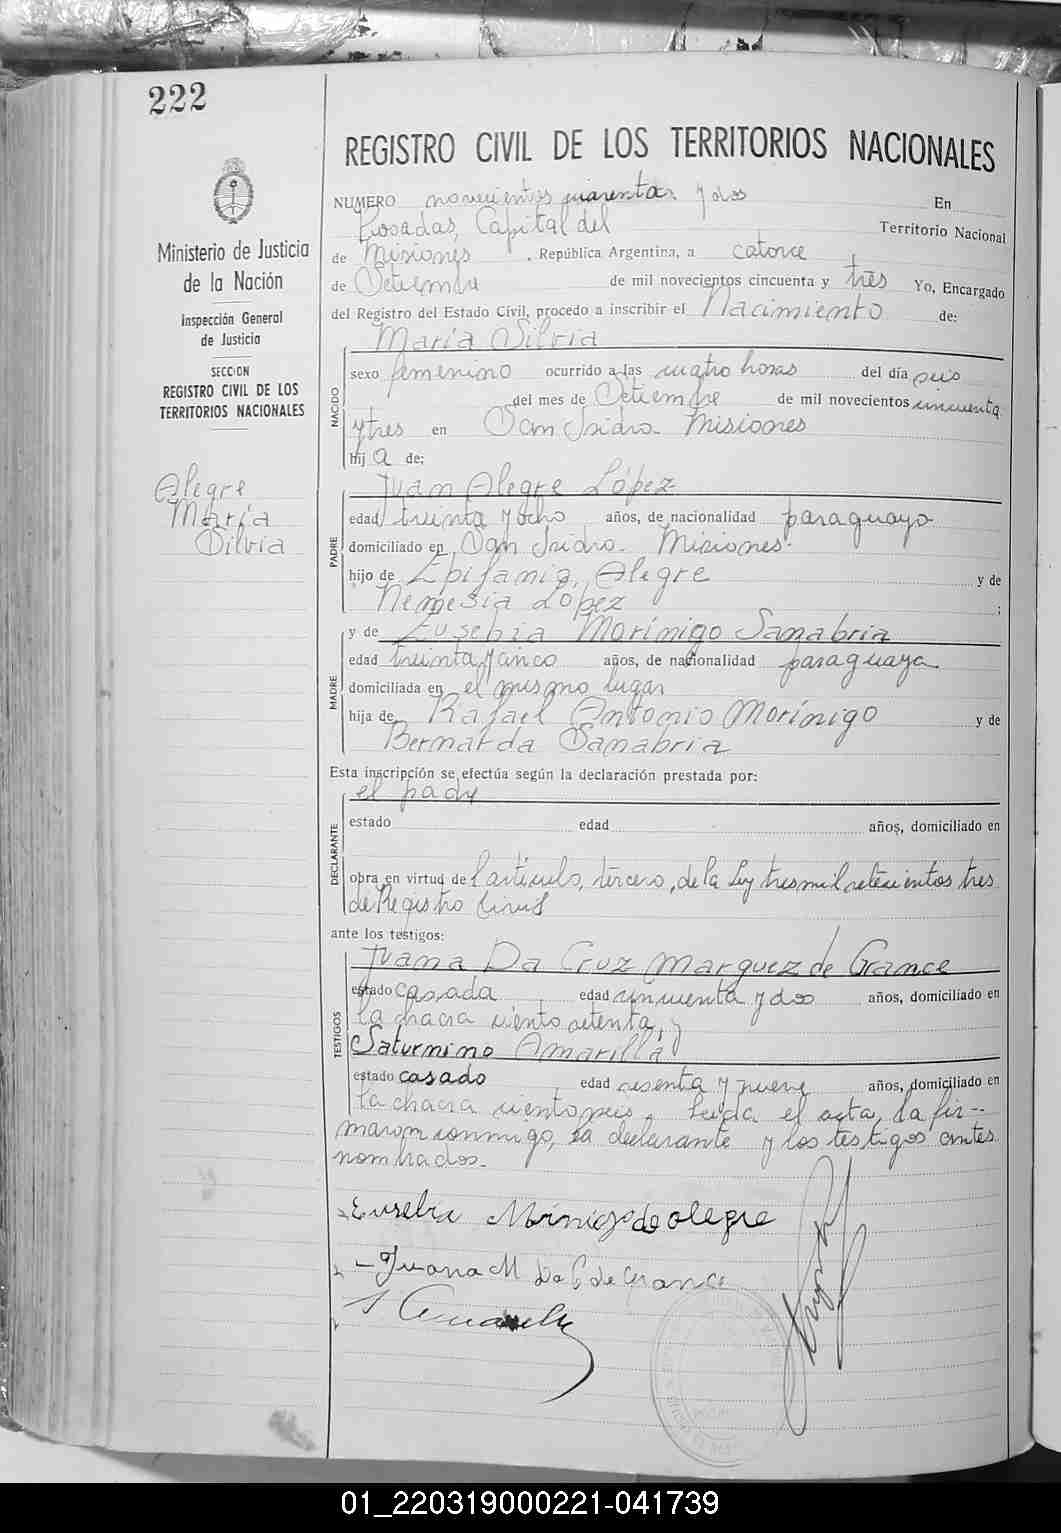 222
REGISTRO CIVIL DE LOS TERRITORIOS NACIONALES
Ministerio de Justicia
de la Nación
Inspección General
de Justicia
SECCION
REGISTRO CIVIL DE LOS
TERRITORIOS NACIONALES
Alegre
María
Silvia
NUMERO novecientos cuarenta y dos En
Posadas, Capital del Territorio Nacional
de Misiones, República Argentina, a catorce
de Setiembre de mil novecientos cincuenta y tres Yo, Encargado
del Registro del Estado Civil, procedo a inscribir el Nacimiento de:
María Silvia
NACIDO
sexo femenino ocurrido a las cuatro horas del día seis
del mes de Setiembre de mil novecientos cincuenta
y tres en San Isidro. Misiones
hij a de:
Juan Alegre López
PADRE
edad treinta y ocho años, de nacionalidad paraguayo
domiciliado en San Isidro. Misiones.
hijo de Epifanio Alegre y de
Nemesia López ;
y de Eusebia Morínigo Sanabria
MADRE
edad treinta y cinco años, de nacionalidad paraguaya
domiciliada en el mismo lugar
hija de Rafael Antonio Morínigo y de
Bernarda Sanabria
Esta inscripción se efectúa según la declaración prestada por:
el padre
DECLARANTE
estado edad años, domiciliado en
obra en virtud de l artículo, tercero, de la Ley tres mil setecientos tres
de Registro Civil
ante los testigos:
Juana Da Cruz Marquez de Grance
TESTIGOS
estado casada edad cincuenta y dos años, domiciliado en
la chacra ciento setenta, y
Saturnino Amarilla
estado casado edad sesenta y nueve años, domiciliado en
la chacra ciento seis. Leída el acta, la fir--
maron conmigo, la declarante y los testigos antes
nombrados.
Eusebia Morinigo de Alegre
- Juana M Da C de Grance
S Amarilla
01_220319000221-041739